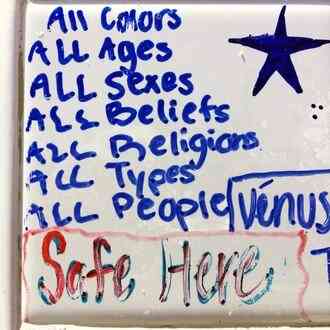 All Colors
ALL Ages
ALL Sexes
ALL Beliefs
ALL Religions
ALL Types
ALL People
Vénus
Safe Here